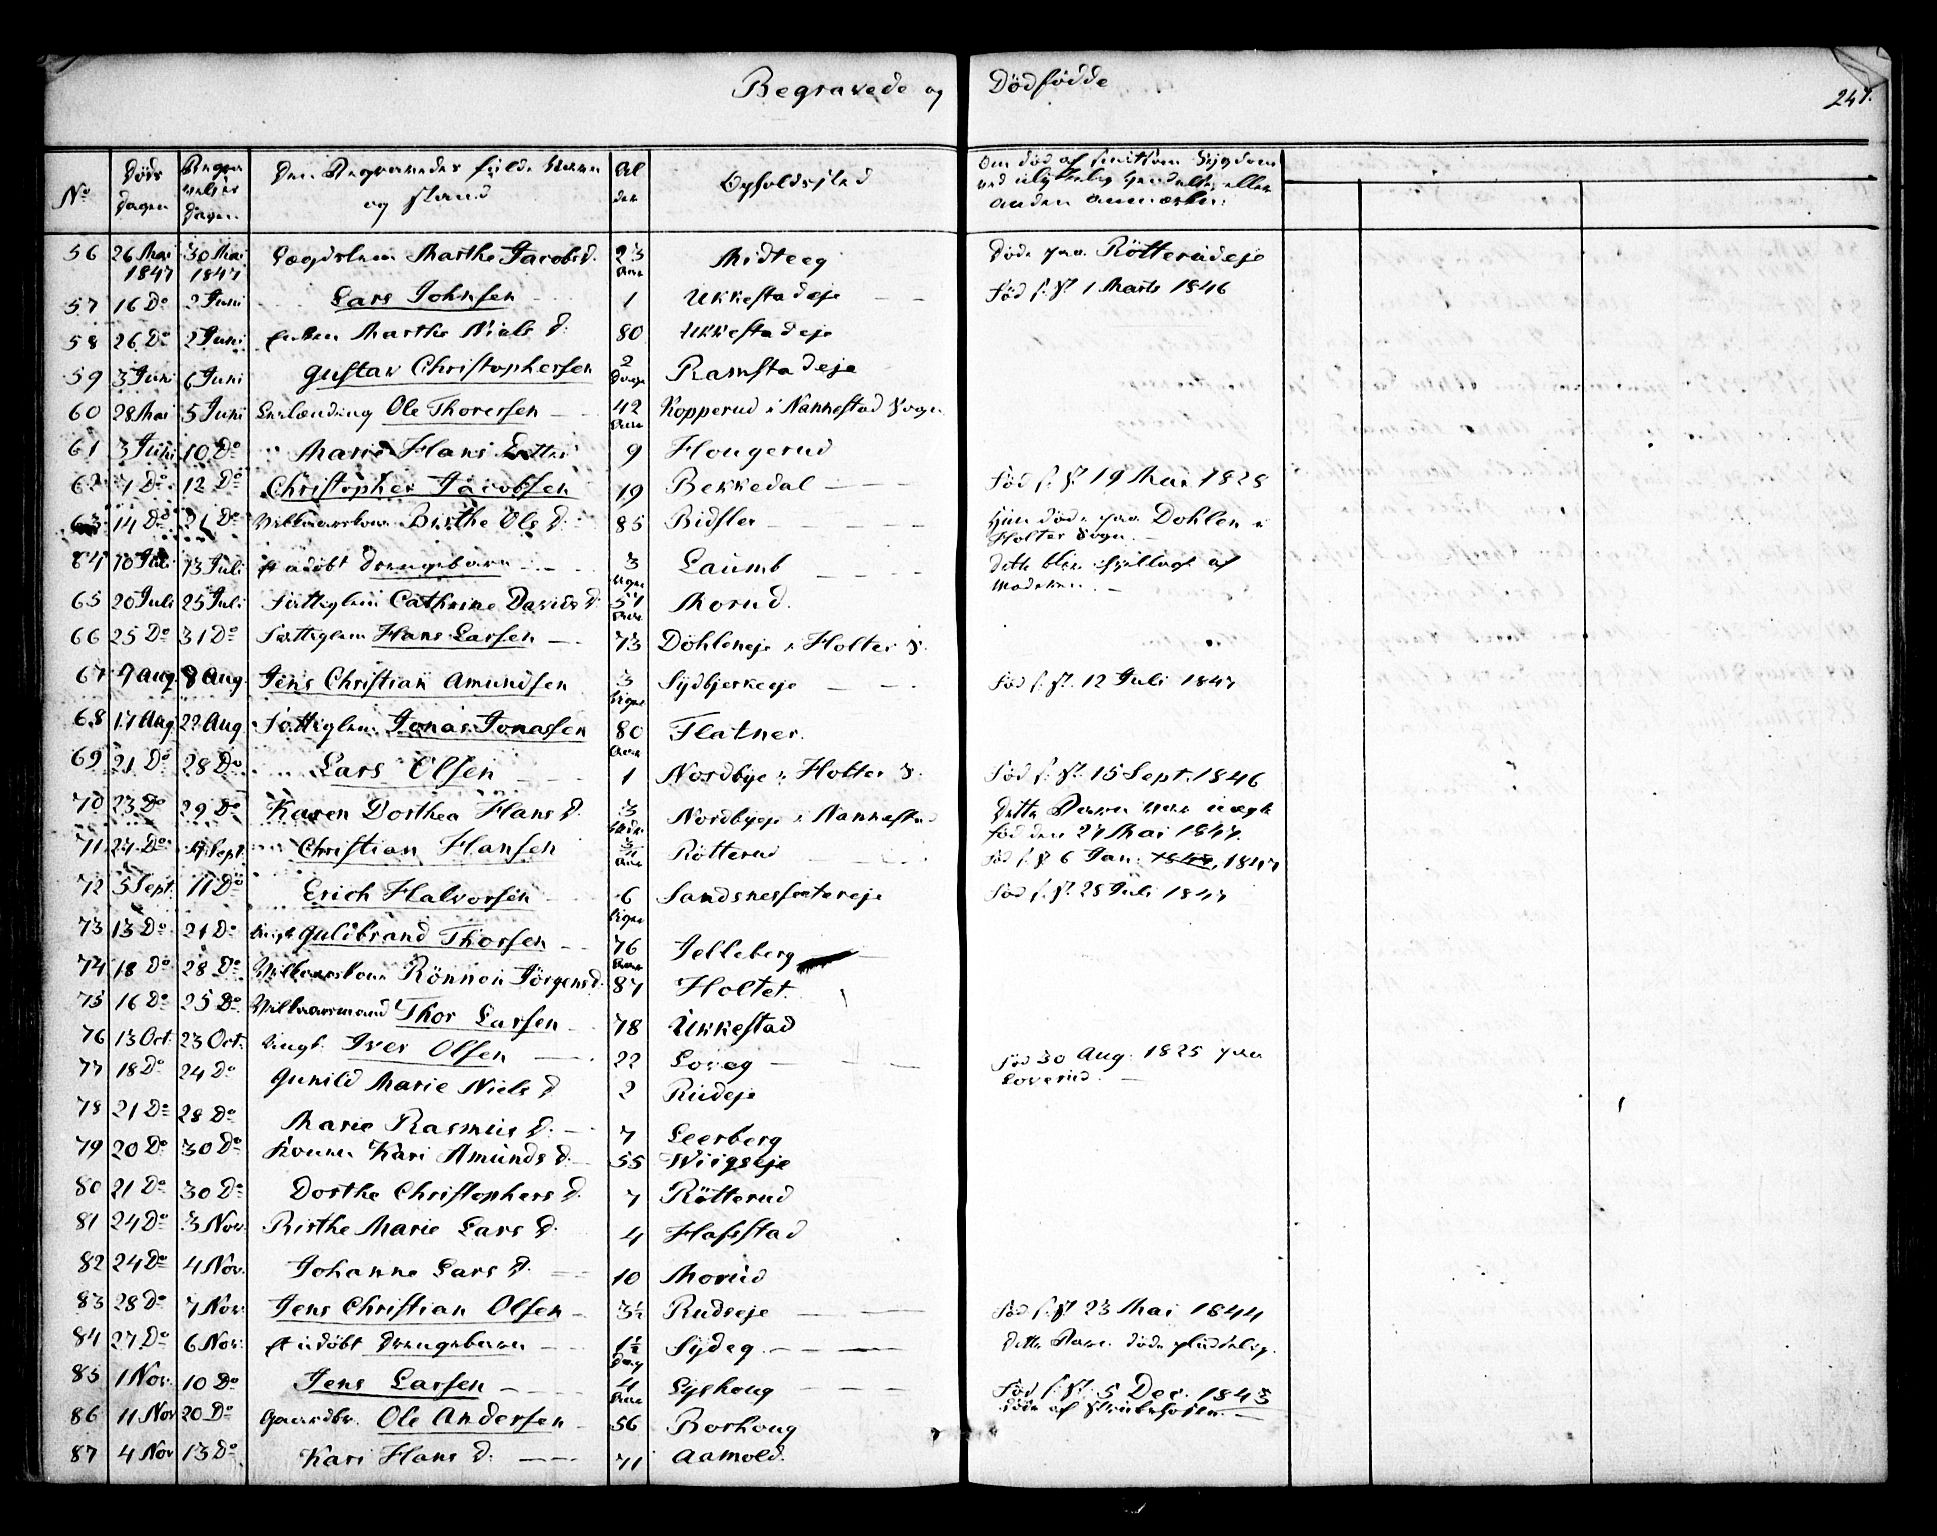 Begravede og Dödfödde
247.
No Döds dagen Begravelses dagen Den Begravedes fulde Navn og stand Alder Opholdssted Om död af smitsom Sygdom ved ulykkelig Hendelse, eller anden anmærkn:
56 26 Mai 1847 30 Mai 1847 Lægdslem Marthe Jacobs d. 23 Aar Midteeg Döde paa Rötterudeje
57 16 Do 2 Juni Lars Johnsen 1 Ukkestadeje Född f. St. 1 Marts 1846
58 26 Do 2 Juni Enken Marthe Niels d. 80 Ukkestadeje
59 3 Juni 6 Juni Gustav Christophersen 2 Dage Ramstadeje
60 28 Mai 5 Juni Ole Thorersen 42 Aar Kopperud i Nannestad Sogn
61 3 Juni 10 Do Marie Hans Datter 9 Hougerud
62 7 Do 12 Do Christopher Jacobsen 19 Bekkedal Född f. St. 19 Mai 1828
63 14 Do 21 Do Vilkaarskone Birthe Ols d. 85 Bidsler Hun döde paa Dohlen i
Holter Sogn.
64 10 Juli 13 Juli et udöbt Drengebarn 3 Uger Laumb Dette blev ihjellagt af
Moderen.
65 20 Juli 25 Juli Fattiglem Cathrine Davids d. 57 Aar Morud.
66 25 Do 31 Do Fattiglem Hans Larsen 73 Dohleneje i Holter S.
67 7 Aug. 8 Aug. Jens Christian Amundsen 3 Uger Sydbjerkeeje Född f. St. 12 Juli 1847
68 17 Aug 22 Aug Fattiglem Jonas Jonassen 80 Aar Flatner.
69 21 Do 28 Do Lars Olsen 1 Nordbye i Holter S. Född f. St. 15 Sept. 1846
70 23 Do 29 Do Karen Dorthea Hans d. 3 Nordbyeje i Nannestad Dette Barn var uægte
född den 27 Mai 1847.
71 27 Do 4 Sept. Christian Hansen Aar Rötterud Född f. St. 6 Jan. 1847
72 5 Sept. 11 Do Erich Halvorsen 6 Uger Sandsnesseetereje Född f. St. 28 Juli 1847
73 13 Do 21 Do Ungk. Gulbrand Thorsen 76 Aar Jelleberg
74 18 Do 28 Do Vilkaarskone Rönnou Jörgens d. 87 Holtet.
75 16 Do 25 Do Vilkaarsmand Thor Larsen 78 Ukkestad
76 13 Oct. 23 Oct. Ungk. Iver Olsen 22 Loveg Född 30 Aug. 1825 paa
Loverud.
77 18 Do 24 Do Gunild Marie Niels d 2 Rudeje
78 21 Do 28 Do Marie Rasmus d. 7 Leerberg
79 20 Do 30 Do Konen Kari Amunds d. 55 Wiigseje
80 21 Do 30 Do Dorthe Christophers d. 7 Rötterud
81 24 Do 3 Nov. Birthe Marie Lars d. 4 Hafstad
82 24 Do 4 Nov. Johanne Lars d. 10 Morud
83 28 Do 7 Nov. Jens Christian Olsen 3½ Rudseje Född f. St. 23 Mai 1844
84 27 Do 6 Nov. et udöbt Drengebarn 1½ Dag Sydeg. Dette Barn döde pludselig.
85 1 Nov. 10 Do Jens Larsen 4 Aar Lyshoug Född f. St. 5 Dec. 1843
Döde af Strubehoste.
86 11 Nov 20 Do Gaardbr. Ole Andersen 56 Borhoug
87 4 Nov 13 Do Kari Hans d. 71 Aamold.